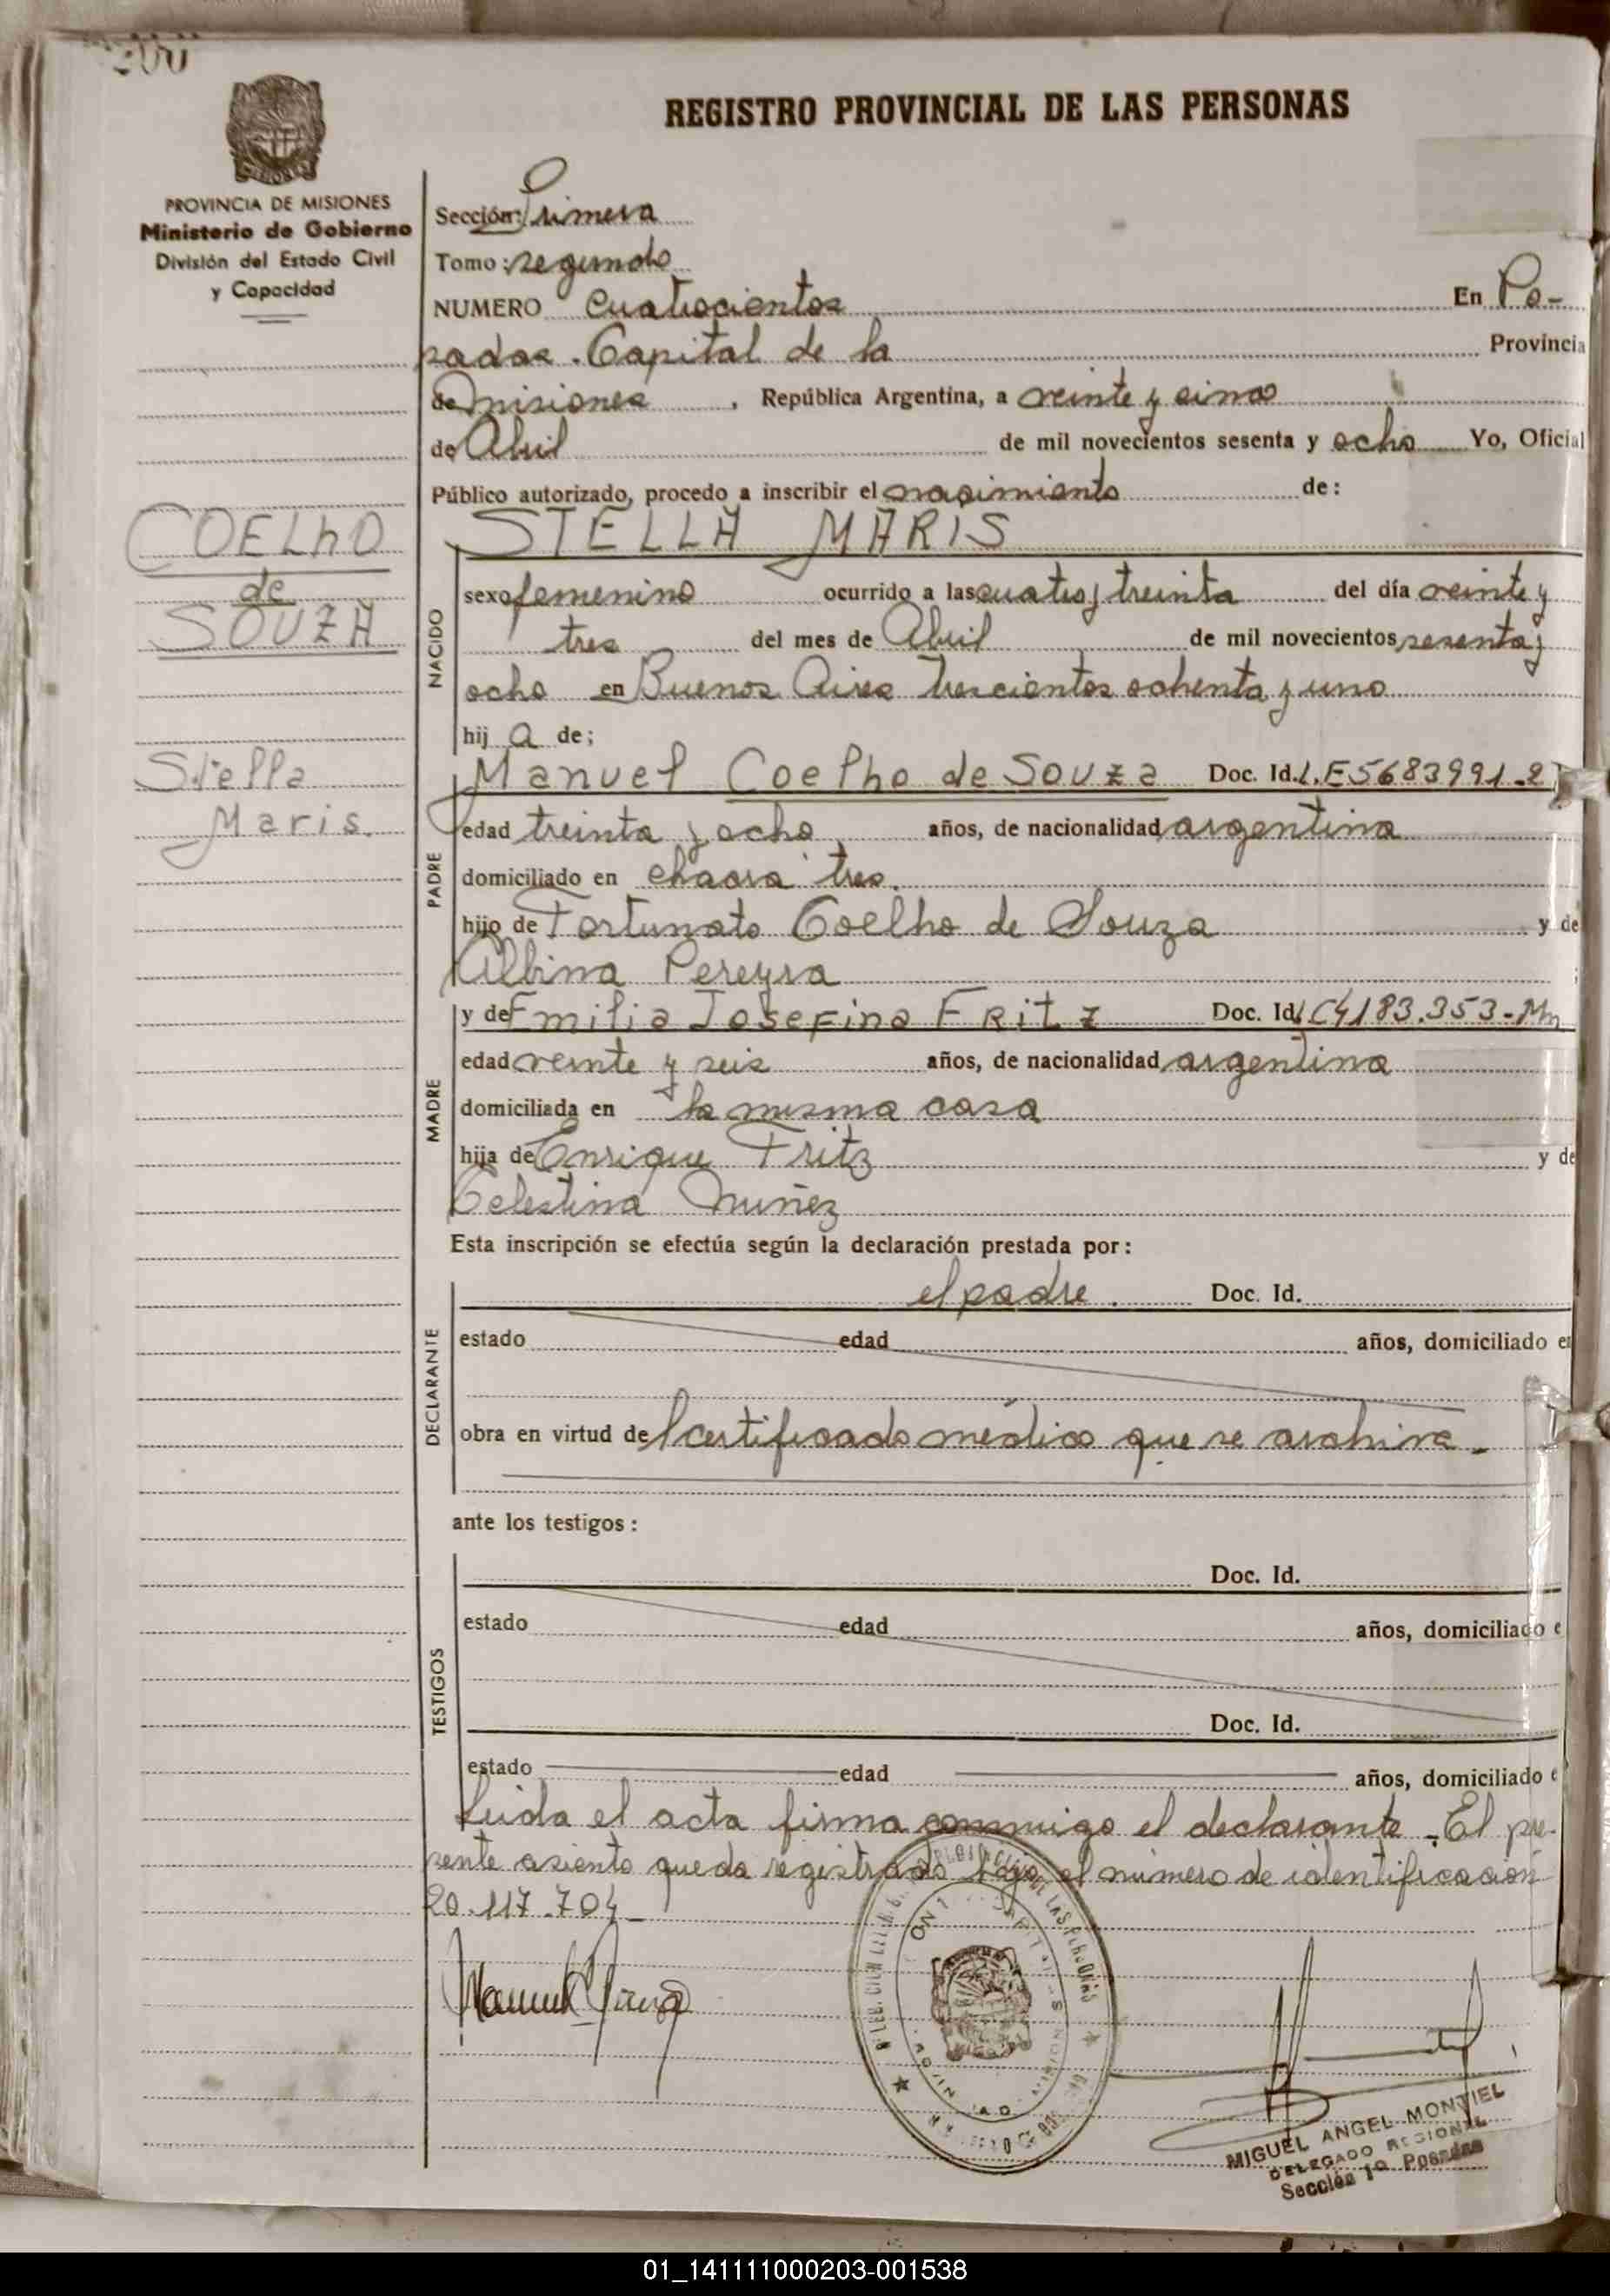 REGISTRO PROVINCIAL DE LAS PERSONAS
PROVINCIA DE MISIONES
Ministerio de Gobierno
División del Estado Civil
y Capacidad
Sección: Primera
Tomo: segundo
NUMERO cuatrocientos En Po-
sadas. Capital de la Provincia
de Misiones, República Argentina, a veinte y cinco
de Abril de mil novecientos sesenta y ocho Yo, Oficial
Público autorizado, procedo a inscribir el nacimiento de:
COELhO
de
SOUZA
Stella
Maris.
STELLA MARIS
NACIDO
sexo femenino ocurrido a las cuatro y treinta del día veinte y
tres del mes de Abril de mil novecientos sesenta y
ocho en Buenos Aires trescientos ochenta y uno
hij a de;
PADRE
Manuel Coelho de Souza Doc. Id. L.E 5683991-2
edad treinta y ocho años, de nacionalidad argentina
domiciliado en chacra tres.
hijo de Fortunato Coelho de Souza y de
Albina Pereyra ;
MADRE
y de Emilia Josefina FRitz Doc. Id. LC4183.353-Mn
edad veinte y seis años, de nacionalidad argentina
domiciliada en la misma casa
hija de Enrique Fritz y de
Celestina Nuñez
Esta inscripción se efectúa según la declaración prestada por:
DECLARANTE
el padre. Doc. Id.
estado edad años, domiciliado en
obra en virtud del certificado médico que se archiva.
ante los testigos:
TESTIGOS
Doc. Id.
estado edad años, domiciliado e
Doc. Id.
estado edad años, domiciliado e
Leida el acta firma conmigo el declarante. El pre-
sente asiento queda registrado bajo el número de identificación
20.117.704
MIGUEL ANGEL MONTIEL
DELEGADO REGIONAL
Sección 1ª Posadas
01_141111000203-001538